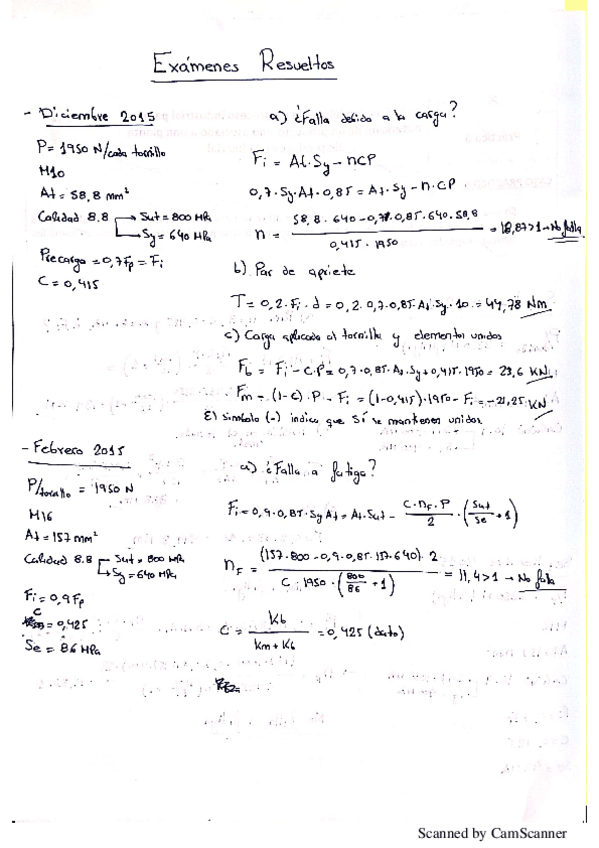 Exámenes Resueltos
- Diciembre 2015
P = 1950 N/cada tornillo
M10
At = 58,8 mm²
Calidad 8.8 → Sut = 800 MPa
→ Sy = 640 MPa
Precarga = 0,7Fp = Fi
C = 0,415
a) ¿Falla debido a la carga?
Fi = At·Sy - nCP
0,7·Sy·At·0,85 = At·Sy - n·CP
n = (58,8·640 - 0,7·0,85·640·58,8) / (0,415·1950) = 18,87 > 1 → No falla
b) Par de apriete
T = 0,2·Fi·d = 0,2·0,7·0,85·At·Sy·10 = 44,78 Nm
c) Carga aplicada al tornillo y elementos unidos
Fb = Fi - C·P = 0,7·0,85·At·Sy + 0,415·1950 = 23,6 KN
Fm = (1-C)·P - Fi = (1-0,415)·1950 - Fi = -21,25 KN
El simbolo (-) indica que sí se mantienen unidos.
- Febrero 2015
P/tornillo = 1950 N
M16
At = 157 mm²
Calidad 8.8 → Sut = 800 MPa
→ Sy = 640 MPa
Fi = 0,9Fp
C = 0,425
Se = 86 MPa
a) ¿Falla a fatiga?
Fi = 0,9·0,85·Sy At = At·Sut - (C·nF·P / 2)·(Sut/Se + 1)
nF = (157·800 - 0,9·0,85·157·640)·2 / (C·1950·(800/86 + 1)) = 11,4 > 1 → No falla
C = Kb / (Km + Kb) = 0,425 (dato)
Scanned by CamScanner